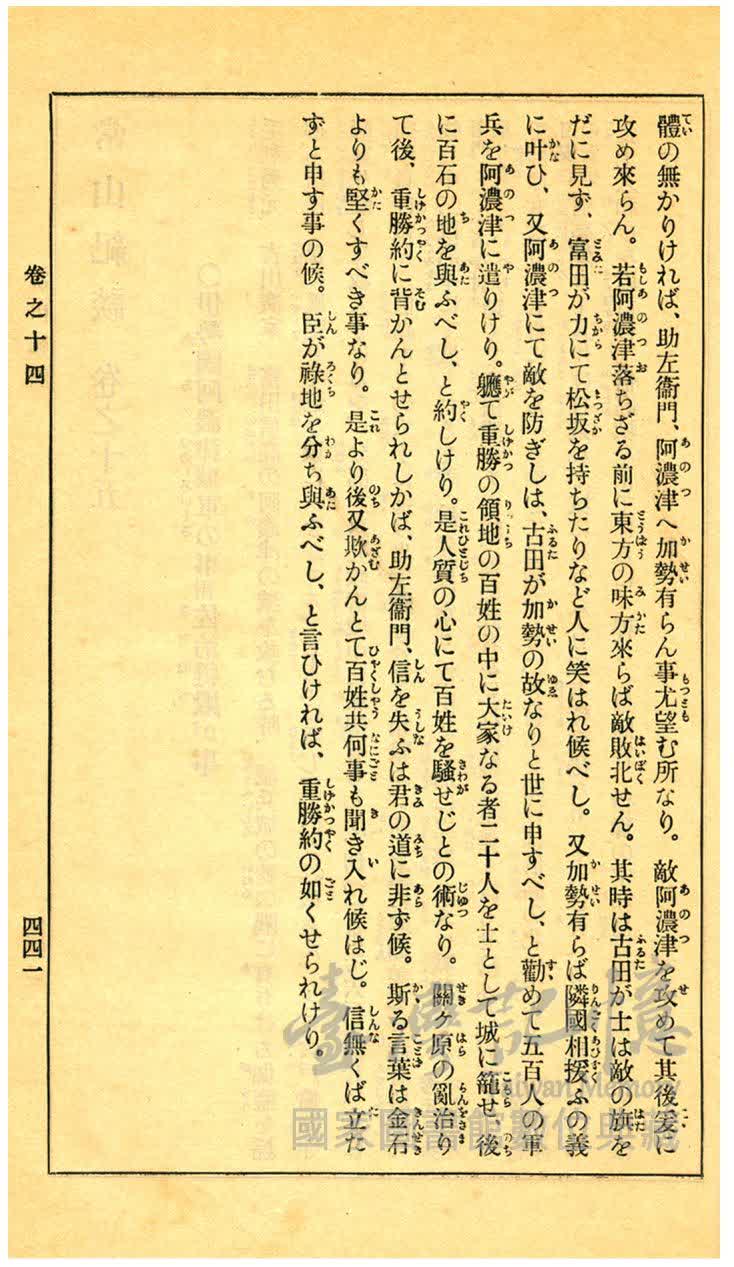 體の無かりければ、助左衞門、阿濃津へ加勢有らん事尤望む所なり。敵阿濃津を攻めて其後爰に
攻め來らん。若阿濃津落ちざる前に東方の味方來らば敵敗北せん。其時は古田が士は敵の旗を
だに見ず、富田が力にて松坂を持ちたりなど人に笑はれ候べし。又加勢有らば隣國相援ふの義
に叶ひ、又阿濃津にて敵を防ぎしは、古田が加勢の故なりと世に申すべし、と勸めて五百人の軍
兵を阿濃津に遣りけり。軈て重勝の領地の百姓の中に大家なる者二十人を士として城に籠せ、後
に百石の地を與ふべし、と約しけり。是人質の心にて百姓を騷せじとの術なり。關ケ原の亂治り
て後、重勝約に背かんとせられしかば、助左衞門、信を失ふは君の道に非ず候。斯る言葉は金石
よりも堅くすべき事なり。是より後又欺かんとて百姓共何事も聞き入れ候はじ。信無くば立た
ずと申す事の候。臣が祿地を分ち與ふべし、と言ひければ、重勝約の如くせられけり。
卷之十四
四四一
臺灣記憶
Taiwan Memory
國家圖書館數位典藏